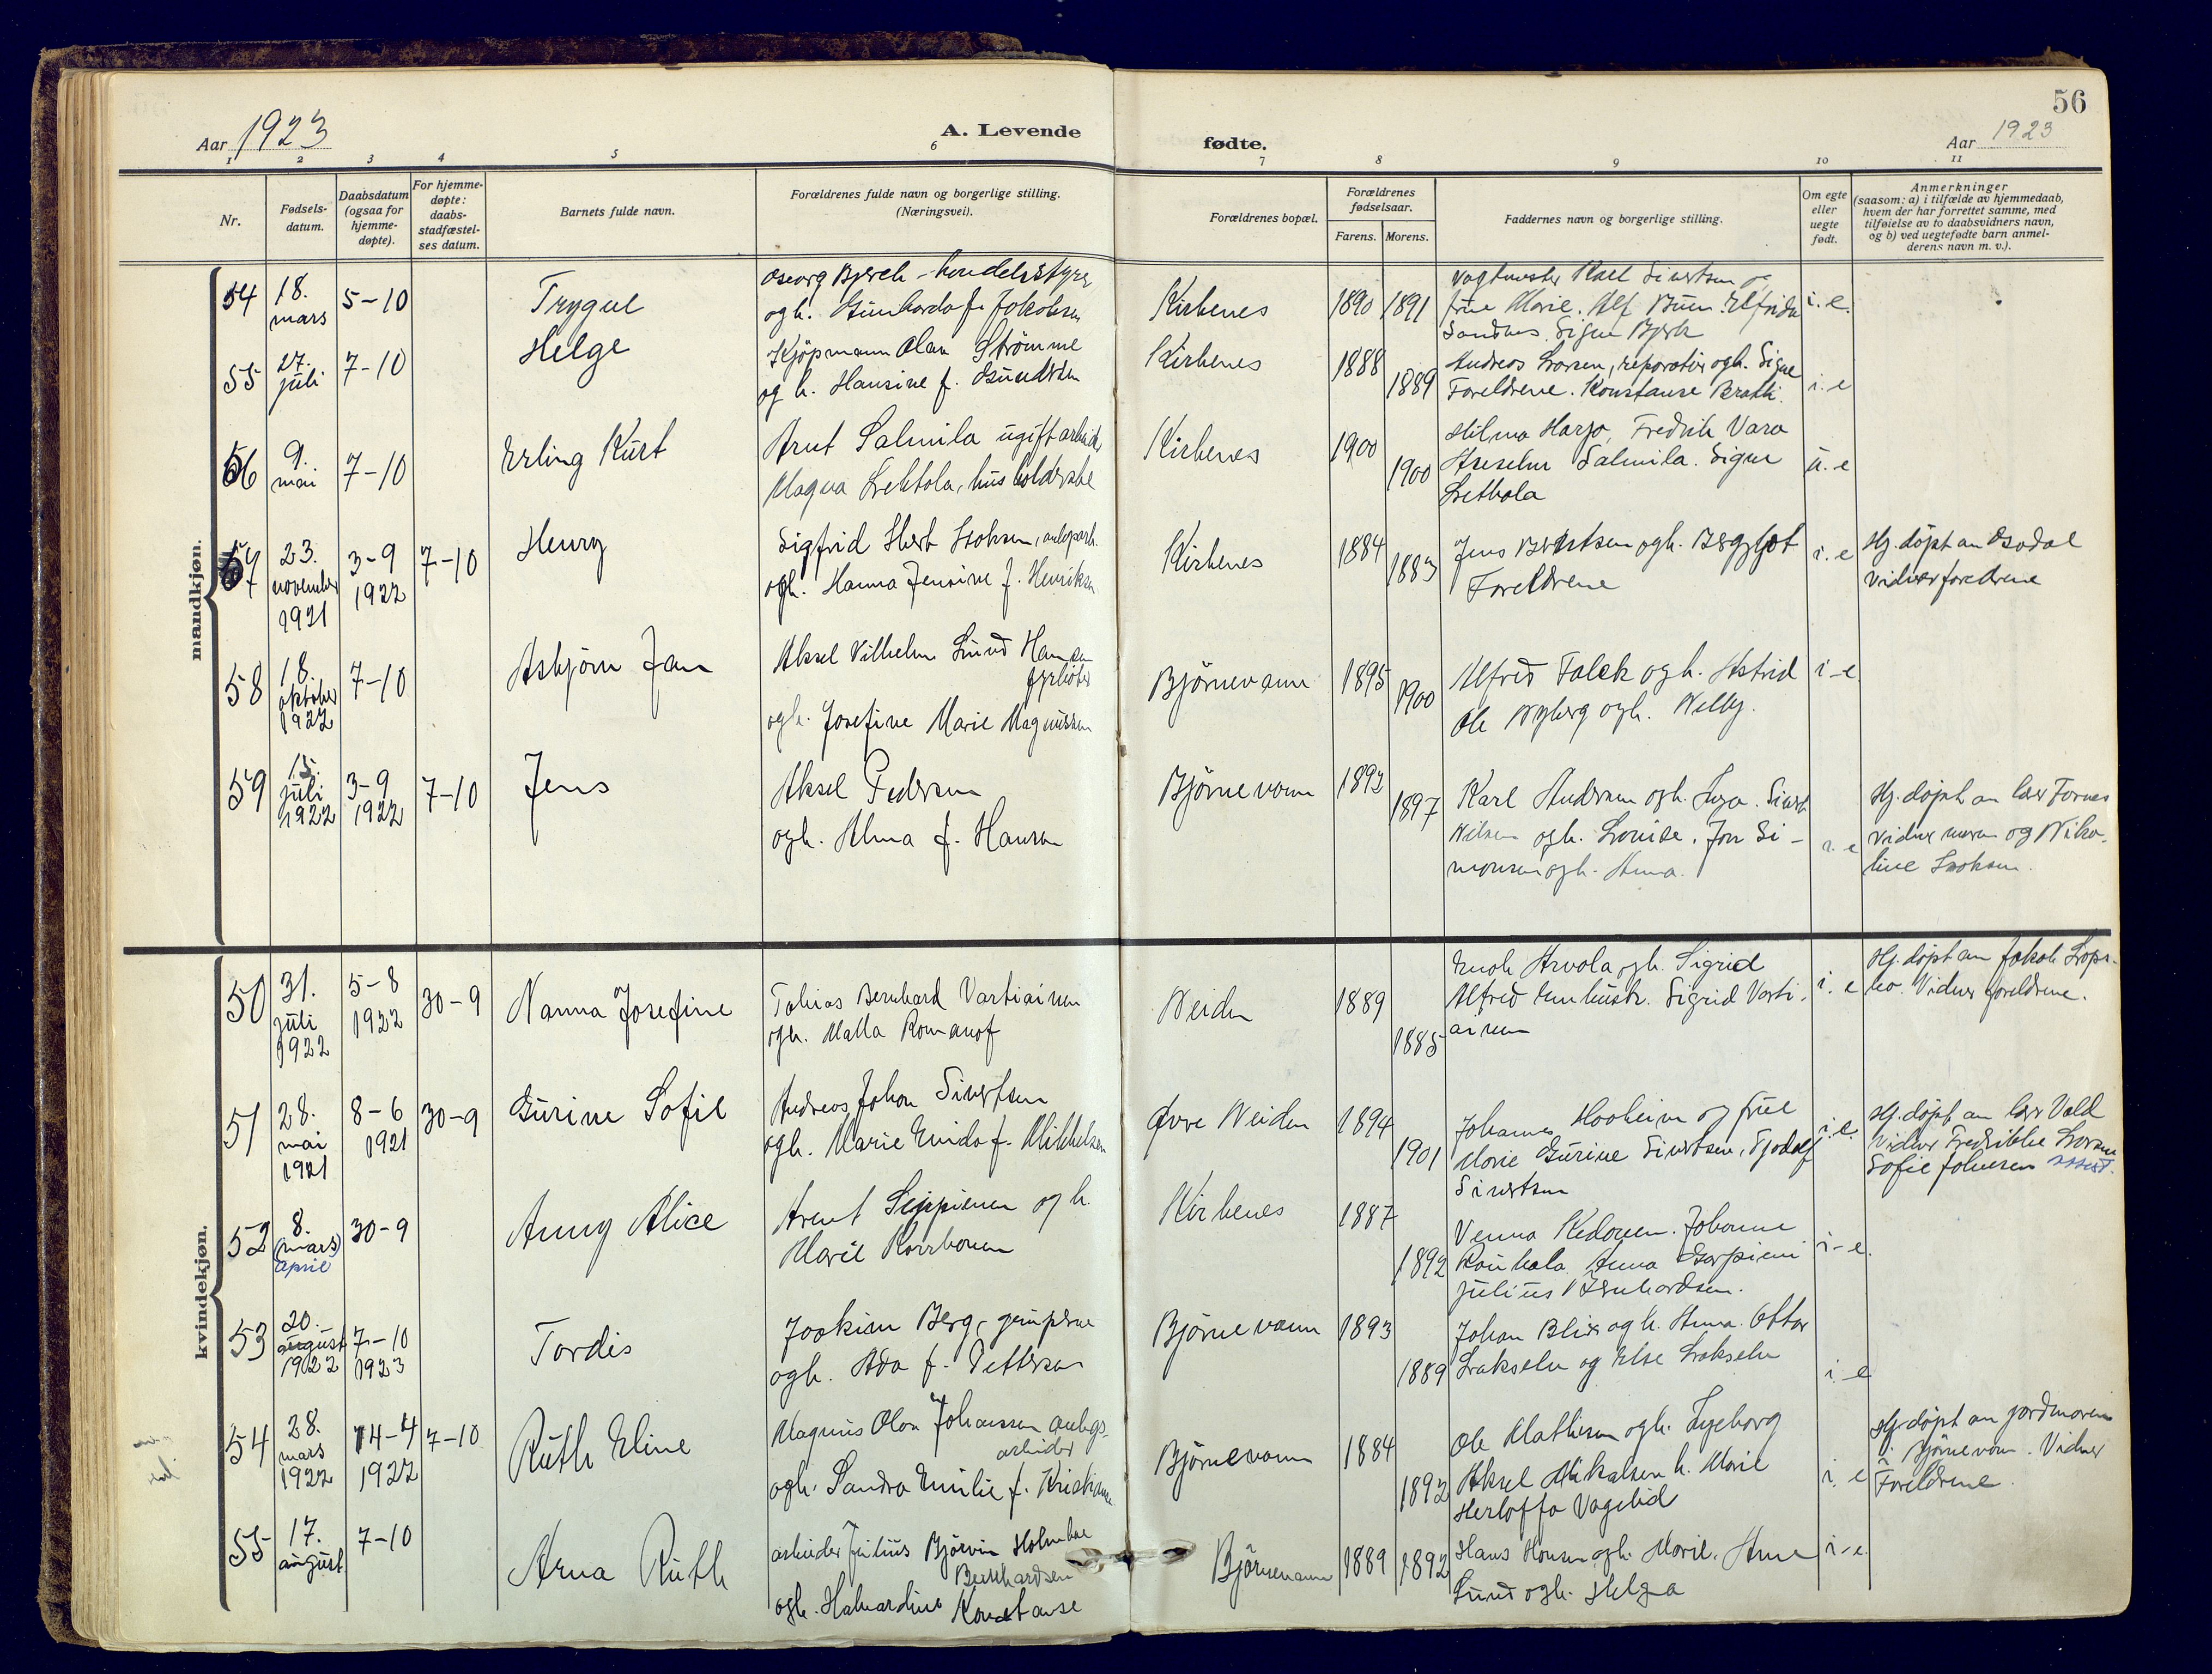 56
Aar 1923
A. Levende
fødte.
Aar 1923
1 2 3 4 5 6 7 8 9 10 11
Nr.
Fødsels-
datum.
Daabsdatum
(ogsaa for
hjemme-
døpte).
For hjemme-
døpte:
daabs-
stadfæstel-
ses datum.
Barnets fulde navn.
Forældrenes fulde navn og borgerlige stilling.
(Næringsvei).
Forældrenes bopæl.
Forældrenes
fødselsaar.
Farens. Morens.
Faddernes navn og borgerlige stilling.
Om egte
eller
uegte
født.
Anmerkninger
(saasom: a) i tilfælde av hjemmedaab,
hvem der har forrettet samme, med
tilføielse av to daabsvidners navn,
og b) ved uegtefødte barn anmel-
derens navn m. v.).
mandkjøn.
54
18.
mars
5-10
Trygve
Georg Bjerch
ogh. f. Jakobsen
Kirkenes
1890 1891
Sivertsen og
frue Marie. Alf
Sandnes. Signe Bjerk
i. e.
55
27.
juli
7-10
Helge
Kjøpmann Olav Strømme
og h. Hansine f. Gundersen
Kirkenes
1888
1889
Andreas Larsen, reparatør ogh. Signe
Foreldrene. Konstanse Bratli.
i. e
56
9.
mai
7-10
Erling Kurt
Arnt Salmila ugift arbeider
Magna Lehtola, husholderske
Kirkenes
1900
1900
Hilma Harjo, Fredrik Vara
Salmila. Signe
Lethola
u. e
57
23.
november
1921
3-9
1922
7-10
Henry
Sigfrid Isaksen
ogh. Hanna Jensine f. Henriksen
Kirkenes
1884
1883
Jens Berntsen ogh. Bergljot
Foreldrene
i. e
Hj. døpt av
vidner foreldrene
58
18.
oktober
1922
7-10
Asbjørn Jan
Aksel Vilhelm Lund Hansen
fyrbøter
ogh. Josefine Marie Magnussen
Bjørnevann
1895
1900
Alfred Falck ogh. Astrid
Ole Nyberg ogh. Nelly.
i-e.
59
15.
juli
1922
3-9
1922
7-10
Jens
Aksel Pedersen
ogh. Alma f. Hansen
Bjørnevann
1892
1897
Karl Andersen ogh. Inga. Sivert
Nilsen ogh. Louise. Jon Si-
monsen ogh. Anna.
i. e
Hj. døpt av lær Fornes
vidner moren og Niko-
line Isaksen.
kvindekjøn.
50
31.
juli
1922
5-8
1922
30-9
Nanna Josefine
Tobias Bernhard Vartiainen
ogh. Malla Romanof
Neiden
1889
1885
Enok Arvola ogh. Sigrid
Alfred Sigrid Varti-
ainen
i. e
Hj. døpt av Jakob
Vidner foreldrene.
51
28.
mai
1921
8-6
1921
30-9
Gurine Sofie
Andreas Johan Sivertsen
ogh. Marie f. Mikkelsen
Øvre Neiden
1894
1901
Johannes Mooheim og frue
Marie Gurine Sivertsen, Tjodolf
Sivertsen
i. e.
Hj. døpt av lær Vold
Vidner Fredrikke Larsen
Sofie Johnsen
52
8.
(mars)
april
30-9
Anny Alice
Arent Seppinen og h.
Marie
Kirkenes
1887
1892
Venna Kedonen. Johanne
Anna
Julius Bernhardsen.
i-e.
53
20.
august
1922
7-10
1923
Tordis
Joakim Berg,
ogh. Ada f. Pettersen
Bjørnevann
1893
1889
Johan Blix ogh. Anna. Ottar
Lakselv og Else Lakselv
i-e
54
28.
mars
1922
14-4
1922
7-10
Ruth Eline
Magnus Olav Johansen anlegs-
arbeider
ogh. Sandra Emilie f. Kristiansen
Bjørnevann
1884
1892
Ole Mathisen ogh. Ingeborg
Aksel Mikalsen h. Marie
i. e
Hj. døpt av jordmoren
i Bjørnevann. Vidner
Foreldrene.
55
17.
august
7-10
Arna Ruth
arbeider Julius Bjørvin
Bernhardsen
ogh. Halvardine Konstanse
Bjørnevann
1889 1892
Hans Hansen ogh. Marie. Arne
Lund ogh. Helga
i-e.